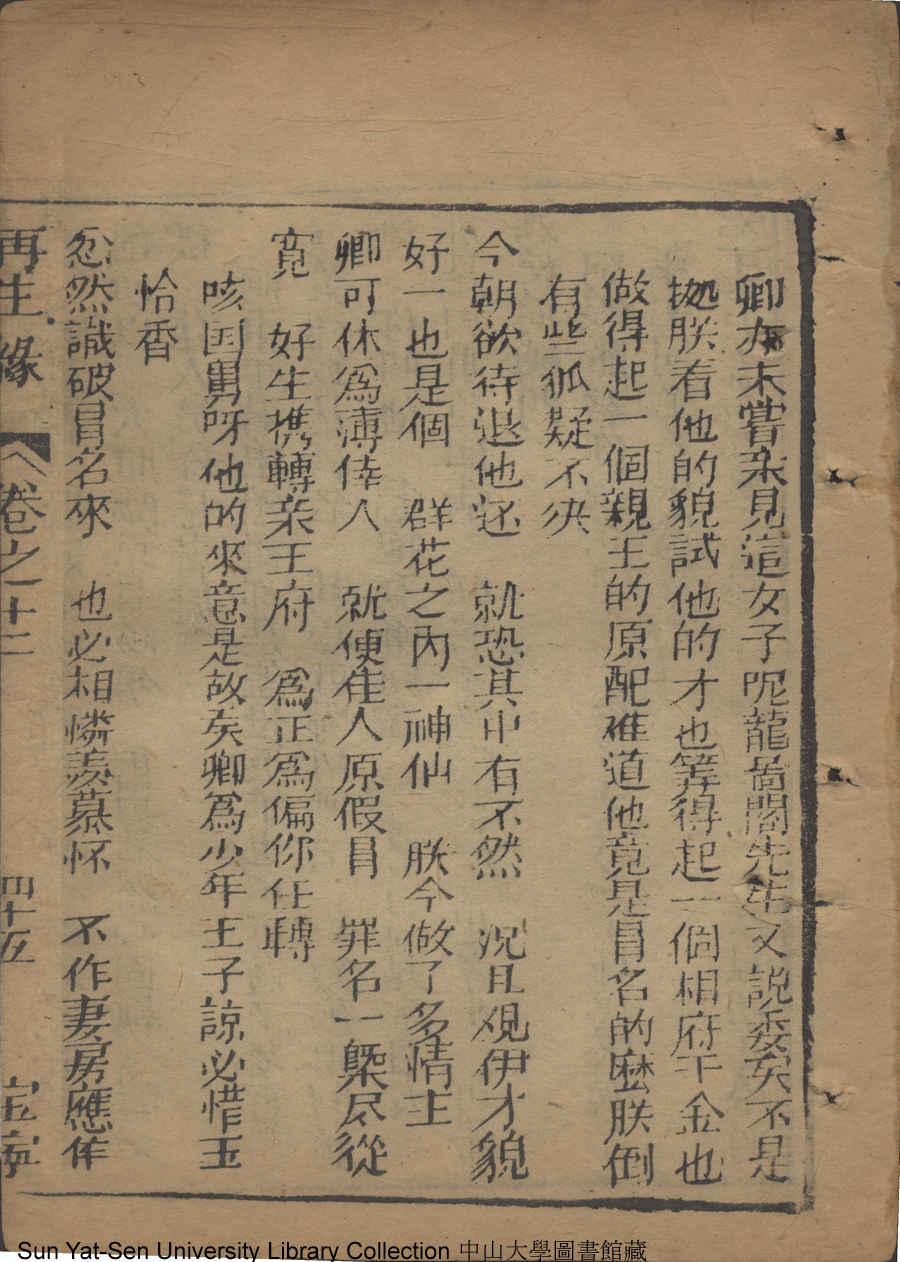 卿亦未嘗亲見這女子呢龍啚閣先生又說委矣不是
拠朕看他的貌試他的才也筭得起一個相府千金也
做得起一個親王的原配难道他竟是冐名的麽朕倒
有些狐疑不决
今朝欲待退他还　就恐其中有不然　况且观伊才貌
好一也是個　群花之內一神仙　朕今做了多情主
卿可休爲薄倖人　就便佳人原假冐　罪名一槩尽從
寬　好生携轉亲王府　爲正爲偏你任轉
咳国舅呀他的來意是故矣卿爲少年王子諒必惜玉
恰香
忽然識破冐名來　也必相憐羡慕怀　不作妻房應作
再生緣　卷之十二　四十五　宝寧
Sun Yat-Sen University Library Collection 中山大學圖書館藏